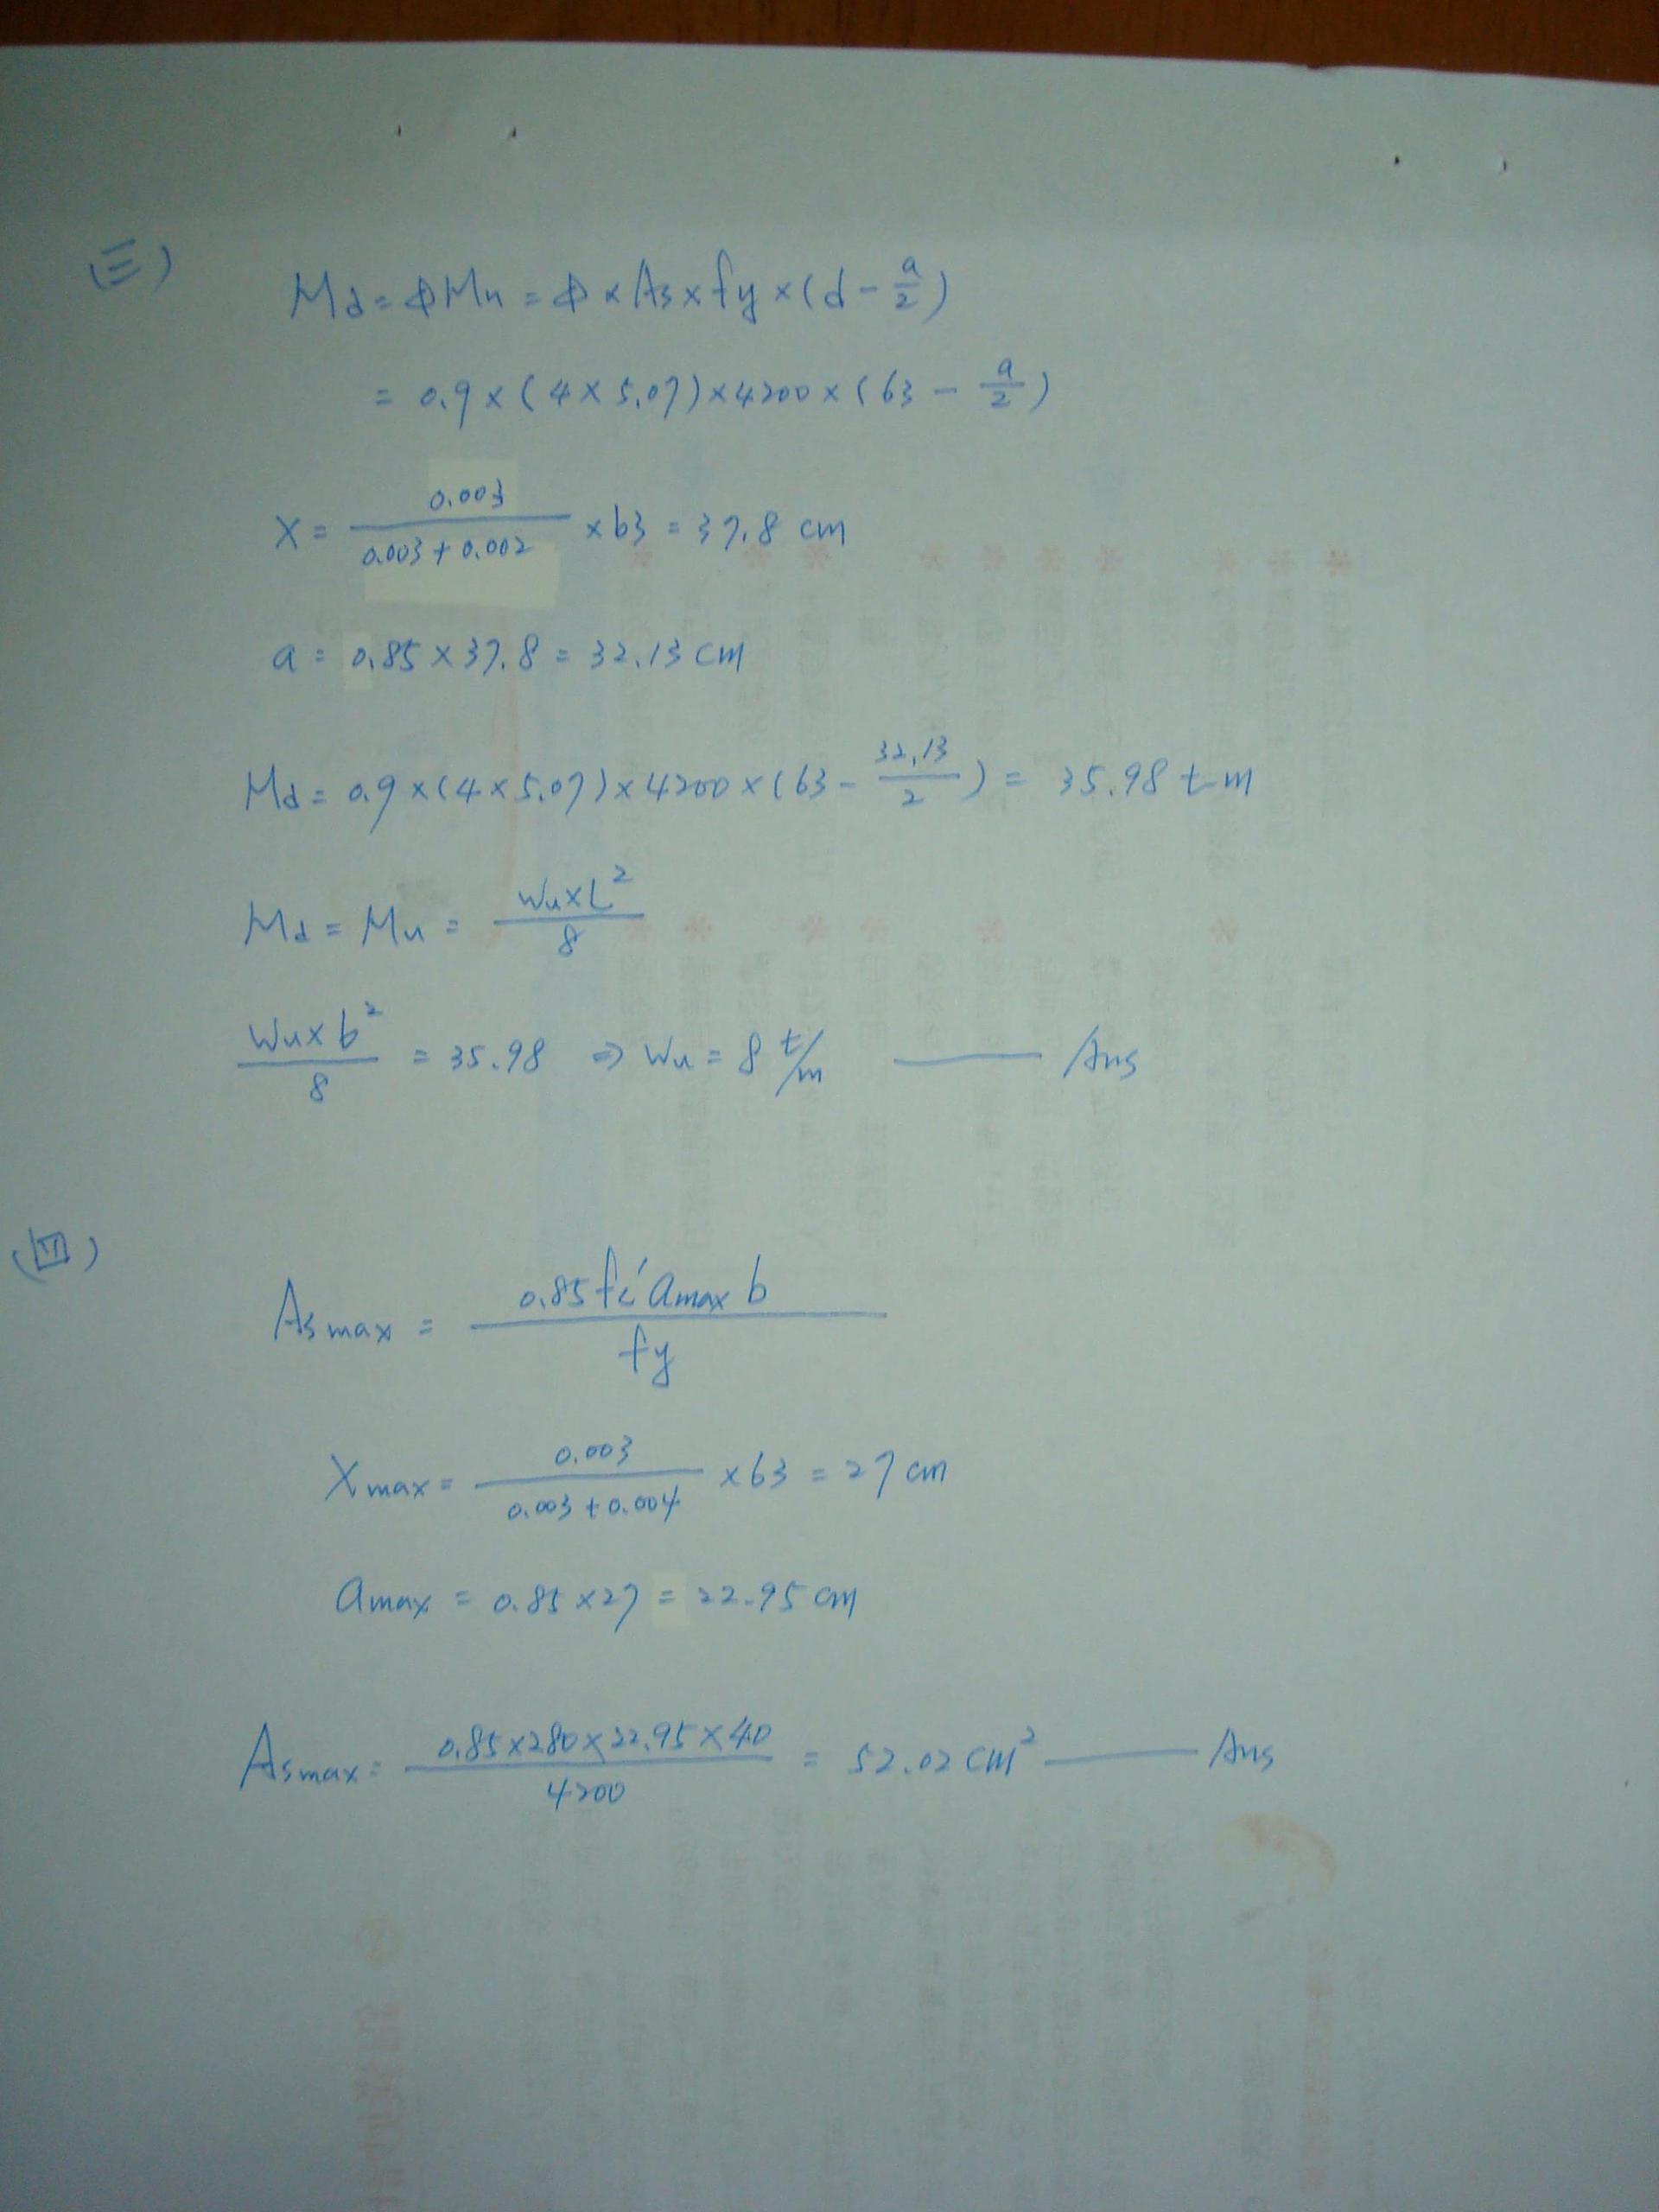 (三)
Md = ΦMn = Φ × As × fy × (d - a/2)
= 0.9 × (4 × 5.07) × 4200 × (63 - a/2)
X = 0.003/(0.003 + 0.002) × 63 = 37.8 cm
a = 0.85 × 37.8 = 32.13 cm
Md = 0.9 × (4 × 5.07) × 4200 × (63 - 32.13/2) = 35.98 t-m
Md = Mu = Wu×L²/8
Wu×6²/8 = 35.98 ⇒ Wu = 8 t/m —— Ans
(四)
Asmax = 0.85 fc' amax b / fy
Xmax = 0.003/(0.003 + 0.004) × 63 = 27 cm
amax = 0.85 × 27 = 22.95 cm
Asmax = 0.85×280×22.95×40/4200 = 52.02 cm² —— Ans